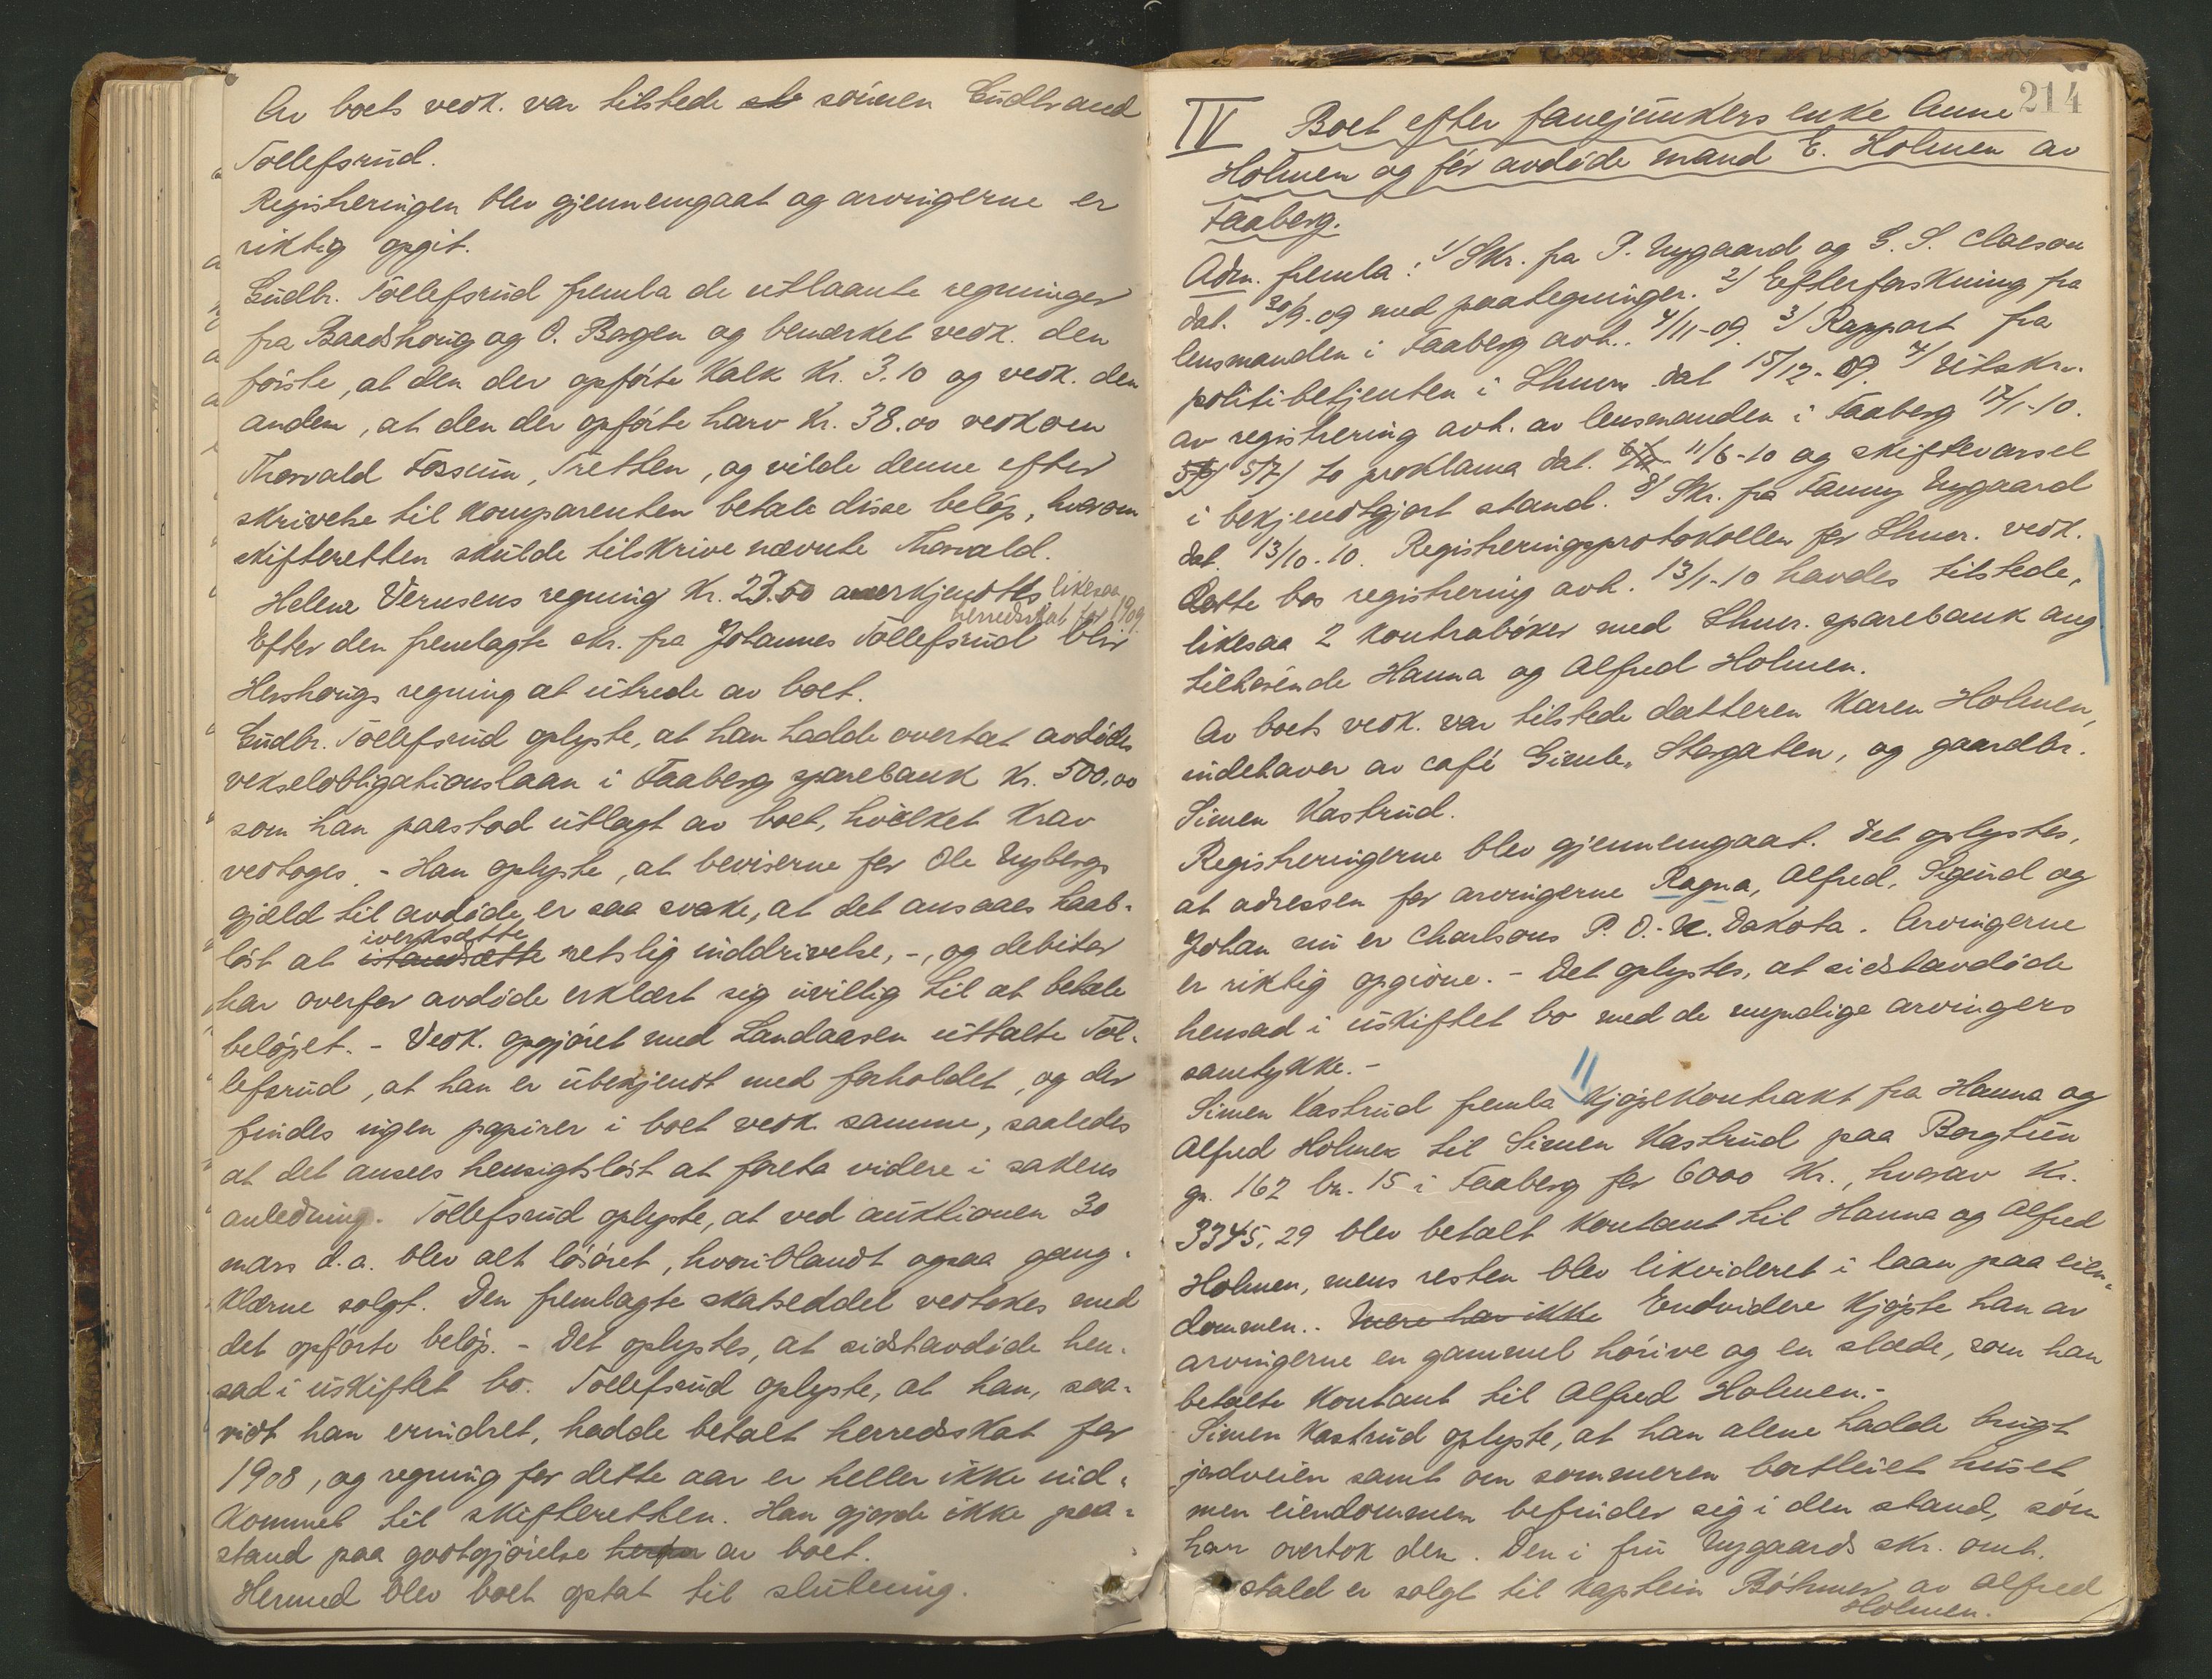 Av boets vedk. var tilstede sönnen Gudbrand
Tollefsrud.
Registreringen blev gjennemgaat og arvingerne er
riktig opgit.
Gudbr. Tollefsrud fremla de utlaante regninger
fra Baadshoug og O. Borgen og bemerket vedk. den
förste, at den der opförte kalk kr. 3.10 og vedk. den
anden, at den der opförte harv kr. 38.00 vedkom
Thorvald Fossum, Tretten, og vilde denne efter
skrivelse til komparenten betale disse belöp, hvorom
skifteretten skulde tilskrive nævnte Thorvald.
Helene Vernsens regning kr. 23.50 anerkjendtes likesaa
herredsskat for 1909.
Efter den fremlagte skr. fra Johannes Tollefsrud blir
Hershougs regning at utrede av boet.
Gudbr. Tollefsrud oplyste, at han hadde overtat avdödes
vekselobligationslaan i Faaberg sparebank kr. 500.00
som han paastod utlagt av boet, hvilket krav
vedtoges. - Han oplyste, at beviserne for Ole Nybergs
gjæld til avdöde, er saa svake, at det ansaaes haab-
löst at istandsætte iverksætte retslig inddrivelse, -, og debitor
har overfor avdöde erklært sig uvillig til at betale
belöpet. - Vedk. opgjöret med Landaasen uttalte Tol-
lefsrud, at han er ubekjendt med forholdet, og der
findes ingen papirer i boet vedk. samme, saaledes
at det ansees hensigtslöst at foreta videre i sakens
anledning. Tollefsrud oplyste, at ved auktionen 30
mars d.a. blev alt lösöret, hvoriblandt ogsaa gang-
klærne solgt. Den fremlagte skatseddel vedtokes med
det opförte belöp. - Det oplystes, at sidstavdöde hen-
sad i uskiftet bo. Tollefsrud oplyste, at han, saa-
vidt han erindret, hadde betalt herredsskat for
1908, og regning for dette aar er heller ikke ind-
kommet til skifteretten. Han gjorde ikke paa-
stand paa godtgjörelse herfor av boet.
Hermed blev boet optat til slutning.
214
IV Boet efter fanejunkers enke Anne
Holmen og för avdöde mand E. Holmen av
Faaberg.
Adm. fremla: 1/ Skr. fra P. Nygaard og G. S. Claeson
dat. 30/9-09 med paategninger. 2/ Efterforskning fra
lensmanden i Faaberg avh. 4/11-09. 3/ Rapport fra
politibetjenten i Lhmr. dat 15/12-09. 4/ Utskr.
av registrering avh. av lensmanden i Faaberg 12/1-10.
5/7/ to proklama dat. 11/6-10 og skiftevarsel
i bekjendtgjort stand. 8/ Skr. fra Fanny Nygaard
dat. 13/10-10. Registreringsprotokollen for Lhmr. vedk.
dette bos registrering avh. 13/1-10 havdes tilstede,
likesaa 2 kontraböker med Lhmr. sparebank ang
tilhörende Hanna og Alfred Holmen.
Av boets vedk. var tilstede datteren Karen Holmen,
indehaver av café Gimle, Storgaten, og gaardbr.
Simen Kastrud.
Registreringerne blev gjennemgaat. Det oplystes,
at adressen for arvingerne Ragna, Alfred, Sigurd og
Johan nu er Charlsons P. O. - N. Dakota. Arvingerne
er riktig opgivne. - Det oplystes, at sidstavdöde
hensad i uskiftet bo med de myndige arvingers
samtykke. -
Simen Kastrud fremla kjöpekontrakt fra Hanna og
Alfred Holmen til Simen Kastrud paa Borgtun
gn. 162 bn. 15 i Faaberg for 6000 kr., hvorav kr.
3345,29 blev betalt kontant til Hanna og Alfred
Holmen, mens resten blev likvideret i laan paa eien-
dommen. - Mere har ikke Endvidere kjöpte han av
arvingerne en gammel hörive og en slæde, som han
betalte kontant til Alfred Holmen. -
Simen Kastrud oplyste, at han alene hadde brugt
jordveien samt om sommeren bortleiet huset
men eiendommen befinder sig i den stand, som
han overtok den. Den i fru Nygaards skr. omh.
stald er solgt til kaptein Böhmer av Alfred
Holmen.